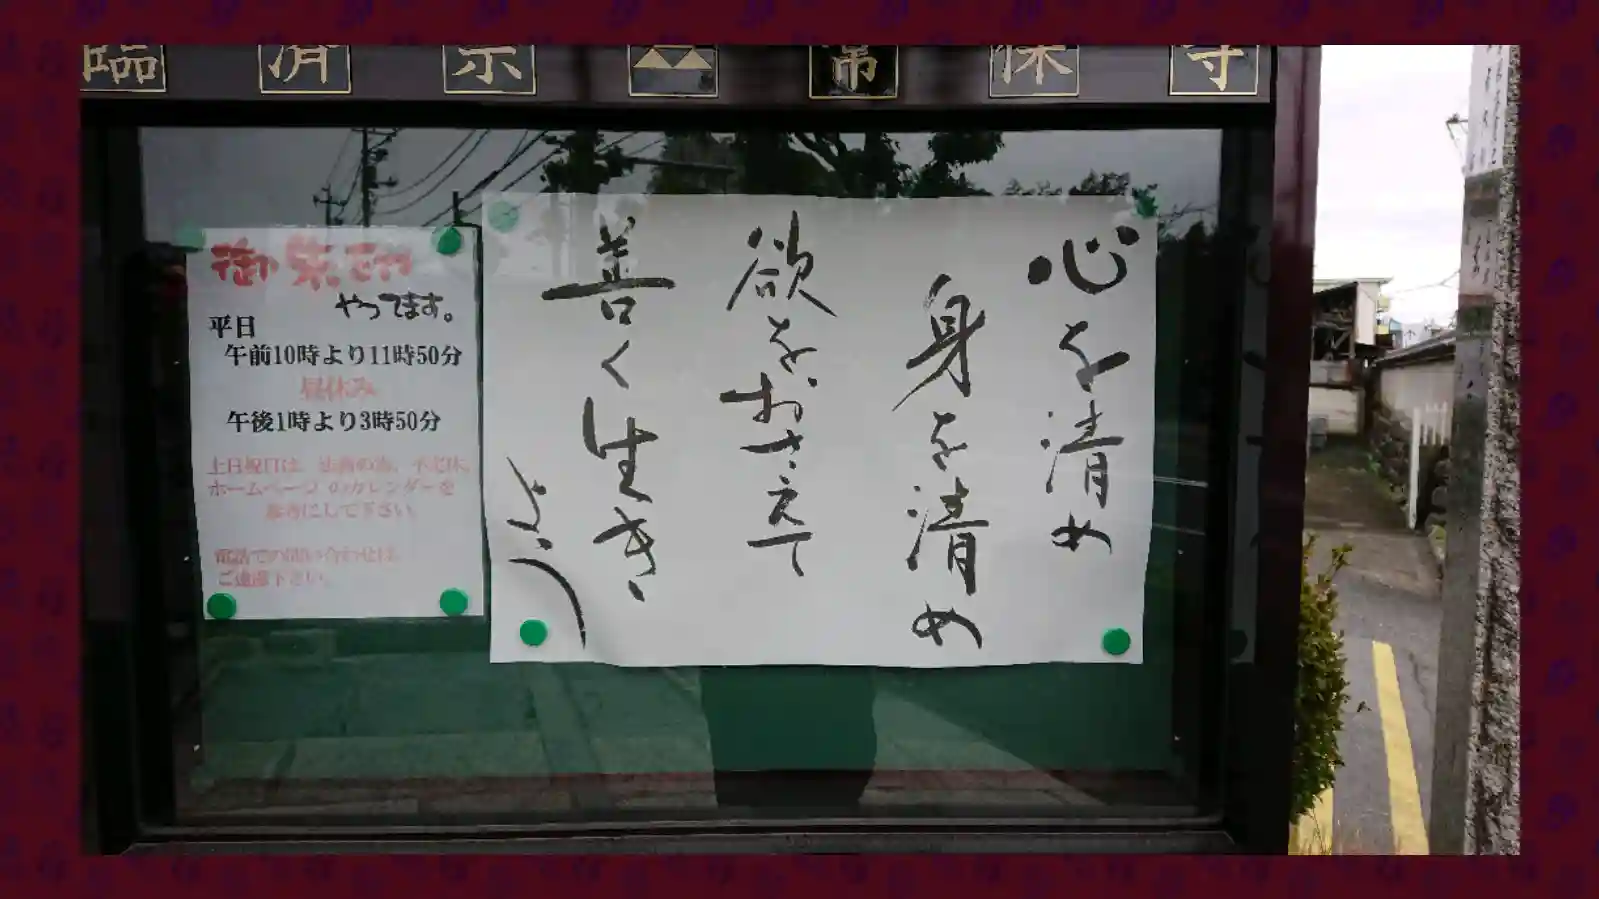 臨済宗 常保寺
御朱印
やってます。
平日
午前10時より11時50分
昼休み
午後1時より3時50分
土日祝日は、法務の為、不定休。
ホームページのカレンダーを
参考にして下さい
電話での問い合わせは、
ご遠慮下さい。
心を清め
身を清め
欲をおさえて
善く生き
よう